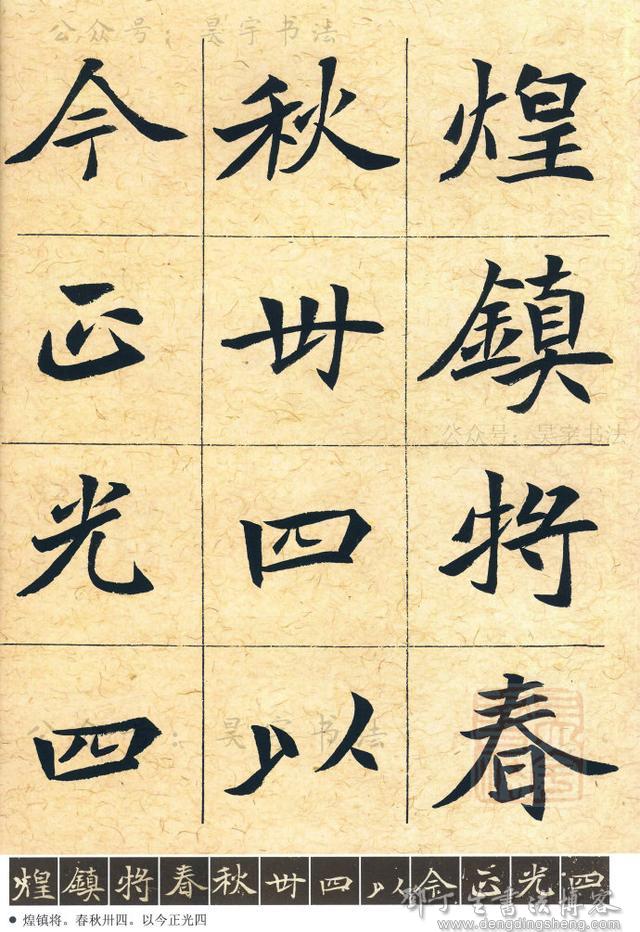 公众号：昊宇书法
煌鎮将春
秋卅四以
今正光四
公众号：昊宇书法
公众号：昊宇书法
煌鎮将春秋卅四以今正光四
煌镇将。春秋卅四。以今正光四
邓丁生书法博客
www.dengdingsheng.com